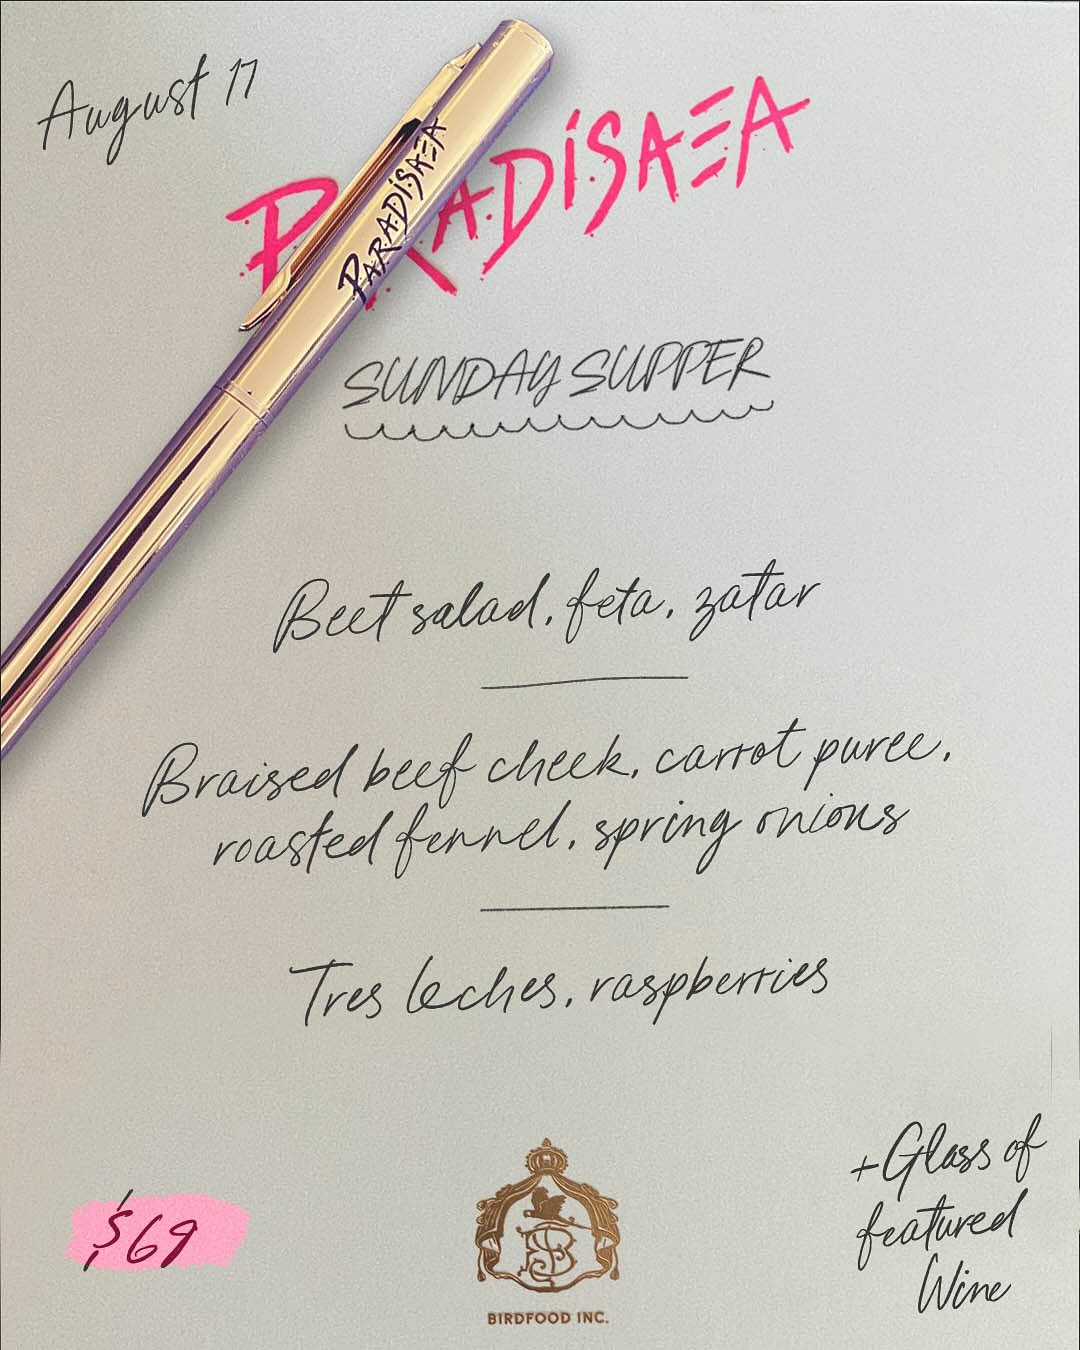 August 17
PARADISAEA
PARADISAEA
SUNDAY SUPPER
Beet salad, feta, zatar
Braised beef cheek, carrot puree,
roasted fennel, spring onions
Tres leches, raspberries
$69
+Glass of
featured
Wine
BIRDFOOD INC.